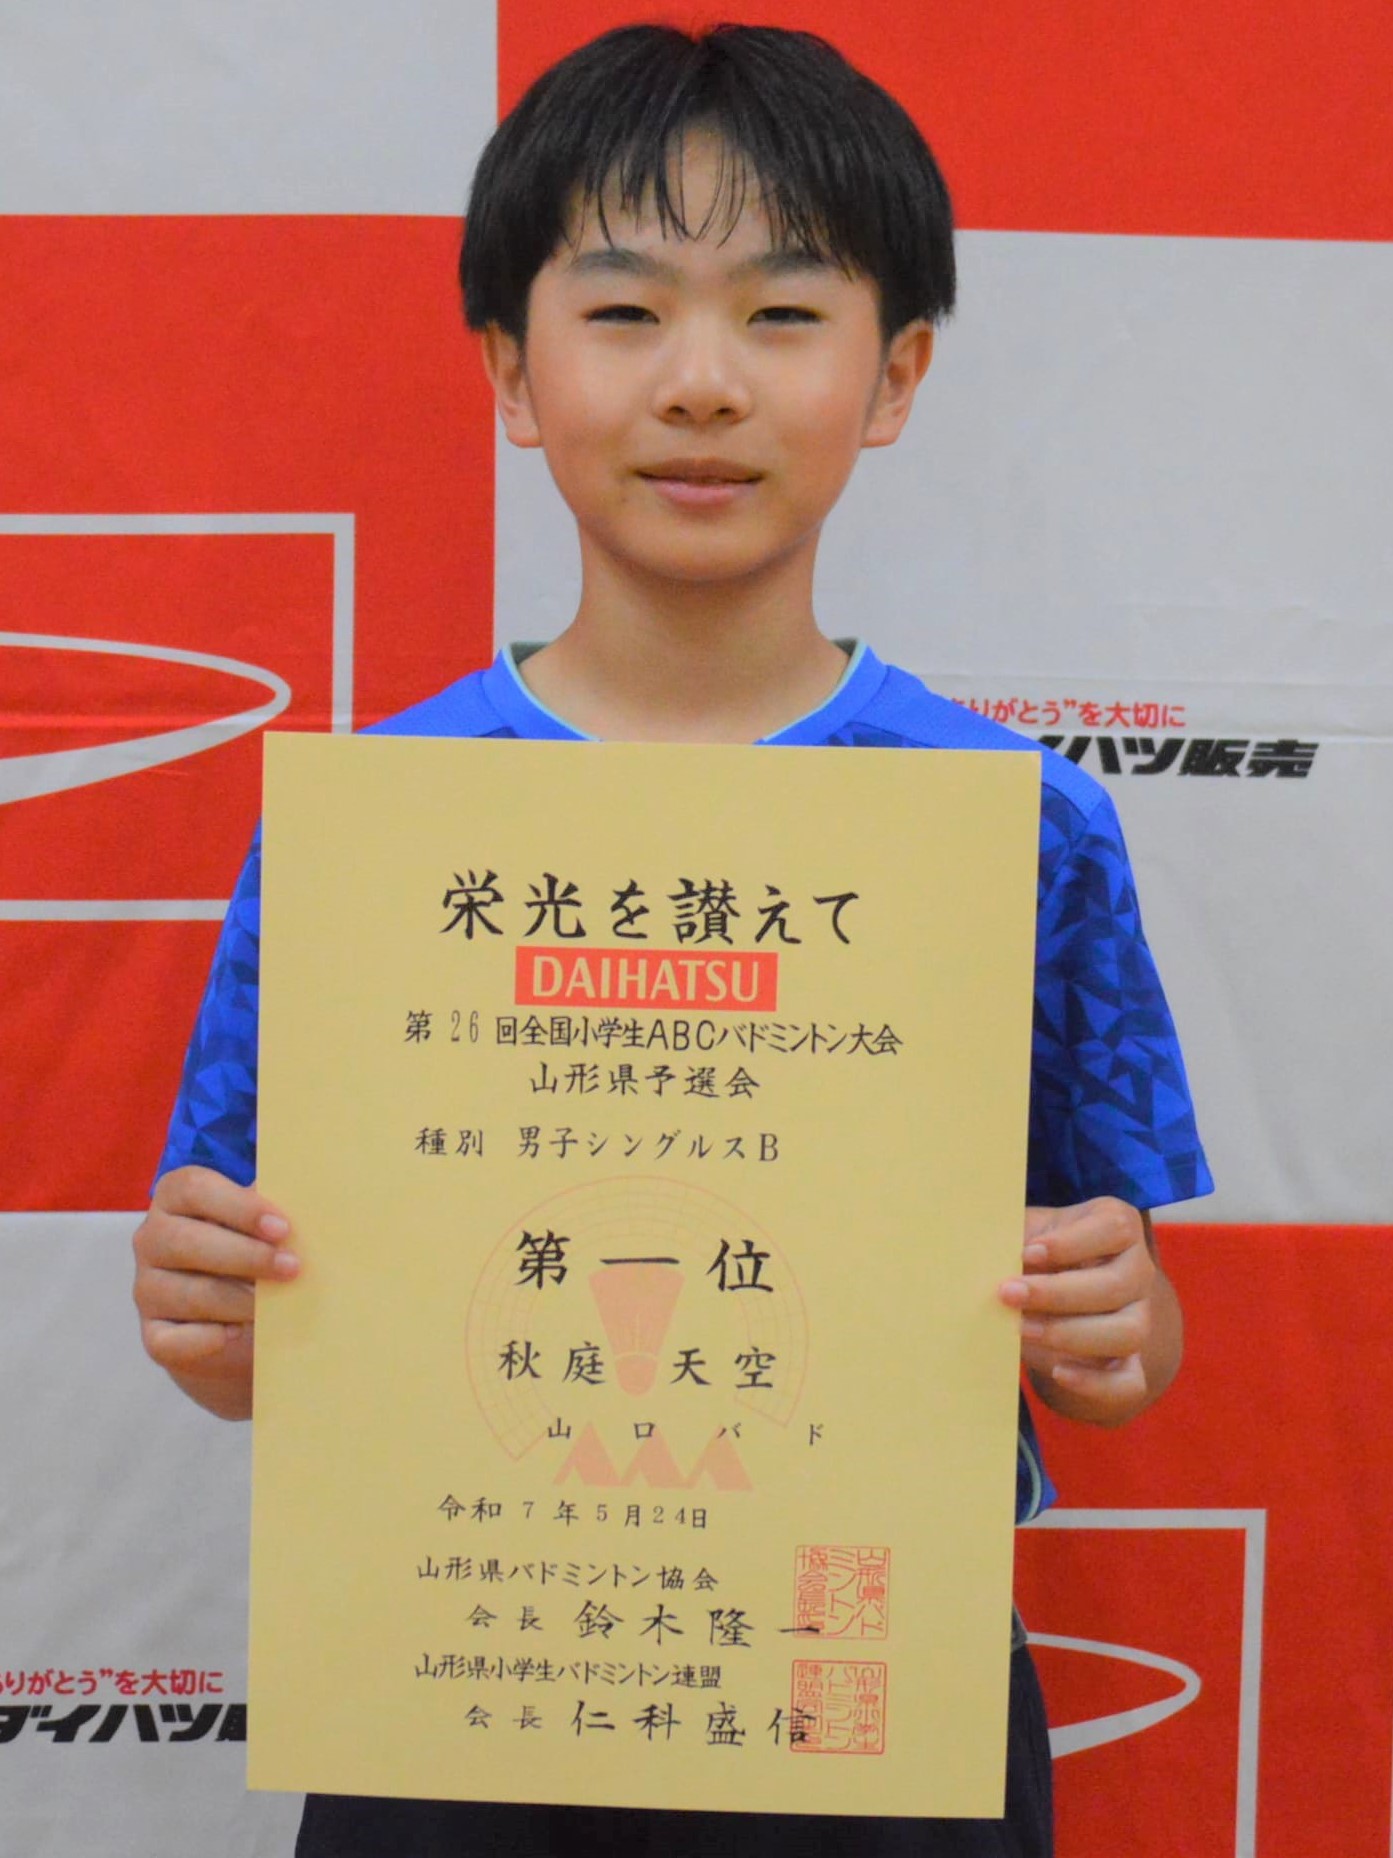 ありがとう”を大切に
イハツ販売
栄光を讃えて
DAIHATSU
第26回全国小学生ABCバドミントン大会
山形県予選会
種別 男子シングルスB
第一位
秋庭 天空
山口バド
令和7年5月24日
山形県バドミントン協会
会長 鈴木隆一
山形県小学生バドミントン連盟
会長 仁科盛信
ありがとう”を大切に
ダイハツ販